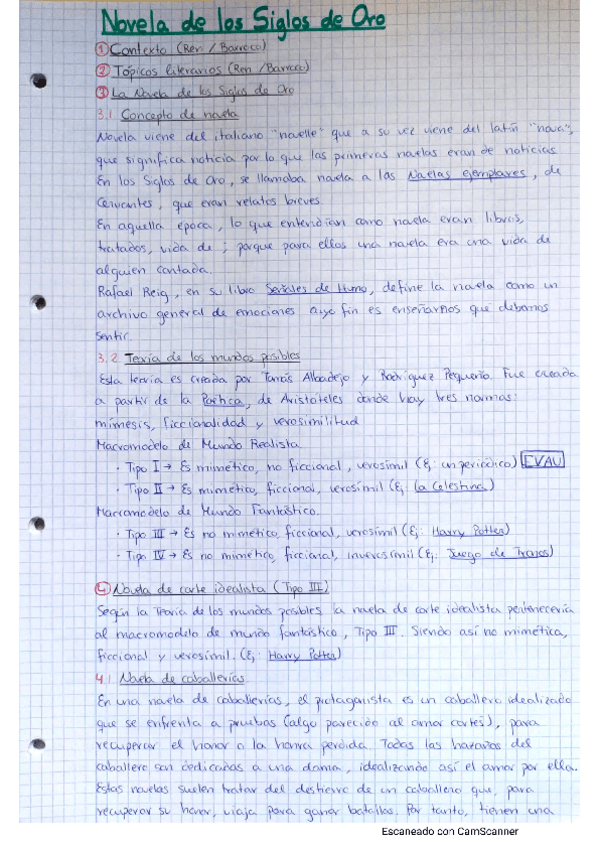 Novela de los Siglos de Oro
① Contexto (Ren / Barroco)
② Tópicos literarios (Ren / Barroco)
③ La Novela de los Siglos de Oro
3.1 Concepto de novela
Novela viene del italiano "novelle" que a su vez viene del latín "nova",
que significa noticia por lo que las primeras novelas eran de noticias
En los Siglos de Oro, se llamaba novela a las Novelas ejemplares, de
Cervantes, que eran relatos breves.
En aquella época, lo que entendían como novela eran libros,
tratados, vida de ; porque para ellos una novela era una vida de
alguien contada.
Rafael Reig, en su libro Señales de Humo, define la novela como un
archivo general de emociones cuyo fin es enseñarnos que debemos
sentir.
3.2 Teoría de los mundos posibles
Esta teoría es creada por Tomás Albadejo y Rodríguez Pequeño. Fue creada
a partir de la Poética, de Aristóteles donde hay tres normas:
mímesis, ficcionalidad y verosimilitud
Macromodelo de Mundo Realista
· Tipo I → Es mimético, no ficcional, verosímil (Ej: un periódico) EVAU
· Tipo II → Es mimético, ficcional, verosímil (Ej: La Celestina)
Macromodelo de Mundo Fantástico.
· Tipo III → Es no mimético, ficcional, verosímil (Ej: Harry Potter)
· Tipo IV → Es no mimético, ficcional, inverosímil (Ej: Juego de Tronos)
④ Novela de corte idealista (Tipo III)
Según la Teoría de los mundos posibles la novela de corte idealista pertenecería
al macromodelo de mundo fantástico, Tipo III. Siendo así no mimética,
ficcional y verosímil. (Ej: Harry Potter)
4.1 Novela de caballerías
En una novela de caballerías, el protagonista es un caballero idealizado
que se enfrenta a pruebas (algo parecido al amor cortés), para
recuperar el honor o la honra perdida. Todas las hazañas del
caballero son dedicadas a una dama, idealizando así el amor por ella.
Estas novelas suelen tratar del destierro de un caballero que, para
recuperar su honor, viaja para ganar batallas. Por tanto, tienen una
Escaneado con CamScanner